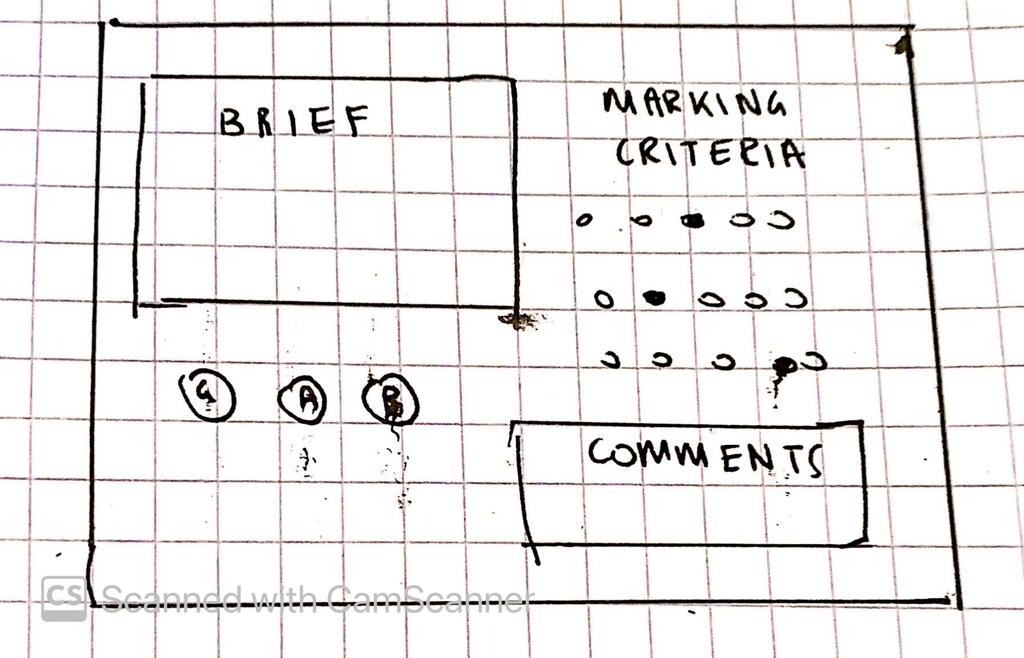 BRIEF
MARKING
CRITERIA
G A R
COMMENTS
CS Scanned with CamScanner